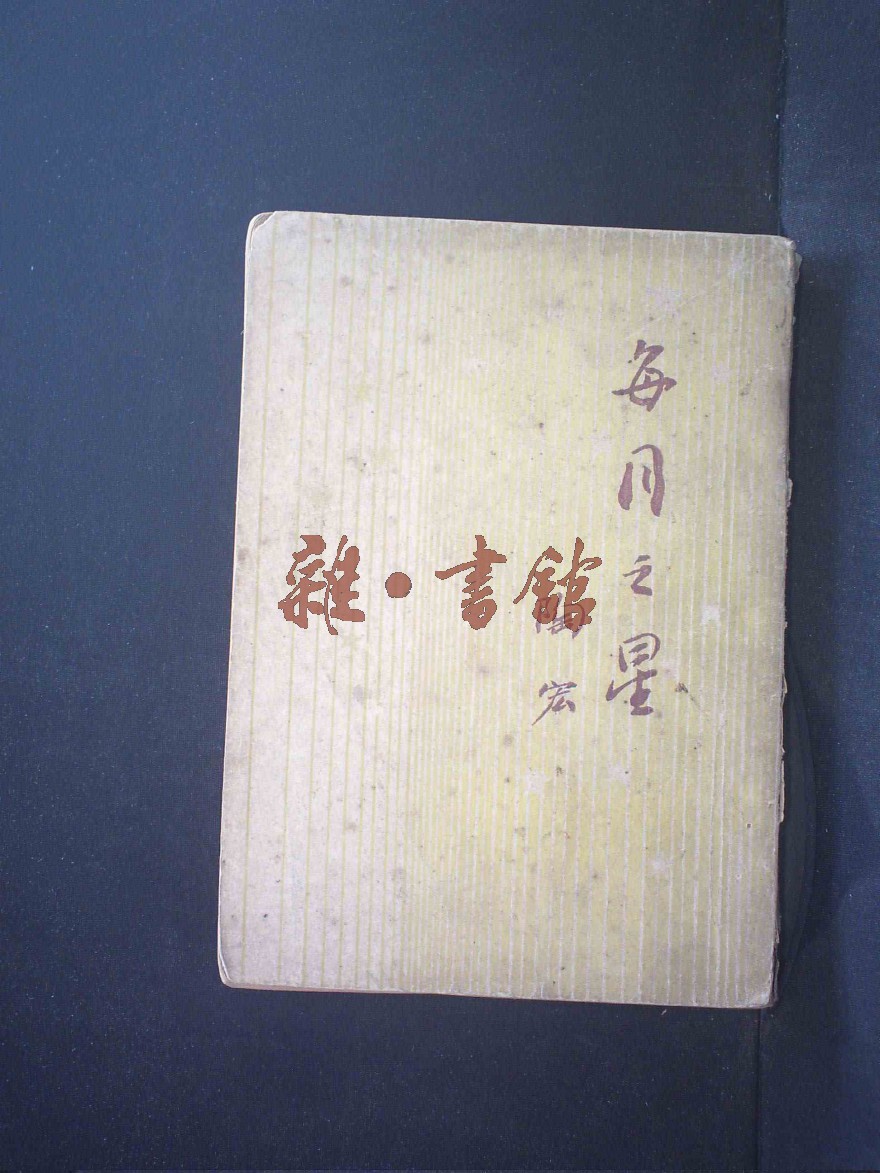 每月之星
陶宏
雜·書館